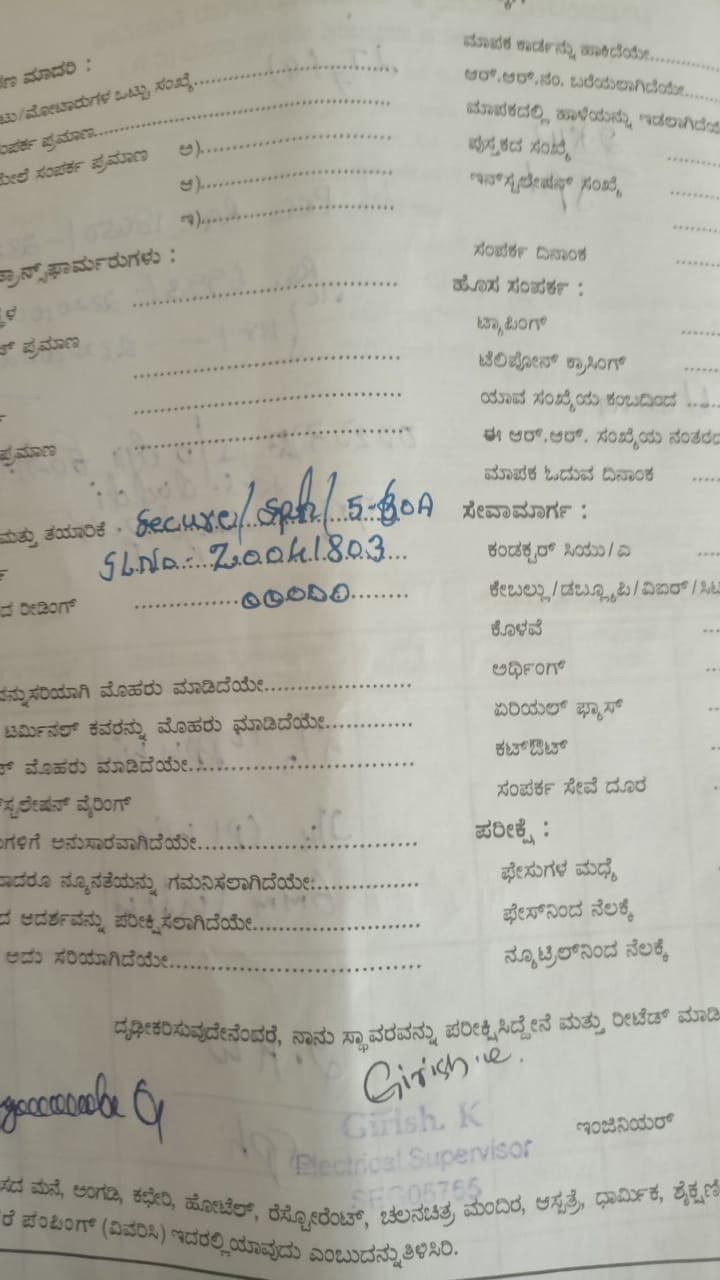 ಮಾಪಕ ಕಾರ್ಡನ್ನು ಹಾಕಿದೆಯೇ..............
ಮಾದರಿ :
ಆರ್.ಆರ್.ನಂ. ಬರೆಯಲಾಗಿದೆಯೇ..............
/ಮೋಟಾರುಗಳ ಒಟ್ಟು ಸಂಖ್ಯೆ..............
ಮಾಪಕದಲ್ಲಿ ಹಾಳೆಯನ್ನು ಇಡಲಾಗಿದೆಯೇ
ಸಂಪರ್ಕ ಪ್ರಮಾಣ..............
ಪುಸ್ತಕದ ಸಂಖ್ಯೆ ..............
ಮೇಲೆ ಸಂಪರ್ಕ ಪ್ರಮಾಣ ಅ)..............
ಇನ್‌ಸ್ಟಲೇಷನ್ ಸಂಖ್ಯೆ ..............
ಆ)..............
ಇ)..............
ಸಂಪರ್ಕ ದಿನಾಂಕ ..............
ಟ್ರಾನ್ಸ್‌ಫಾರ್ಮರುಗಳು :
ಹೊಸ ಸಂಪರ್ಕ :
ಟ್ಯಾಪಿಂಗ್ ..............
ಪ್ರಮಾಣ
ಟೆಲಿಪೋನ್ ಕ್ರಾಸಿಂಗ್ ..............
ಯಾವ ಸಂಖ್ಯೆಯ ಕಂಬದಿಂದ ..............
ಪ್ರಮಾಣ ..............
ಈ ಆರ್.ಆರ್. ಸಂಖ್ಯೆಯ ನಂತರದ
ಮಾಪಕ ಓದುವ ದಿನಾಂಕ ..............
ಮತ್ತು ತಯಾರಿಕೆ . Secure/Sph/5-30A
ಸೇವಾಮಾರ್ಗ :
SL.No.: 20041803
ಕಂಡಕ್ಟರ್ ಸಿಯು/ಎ ..............
ರೀಡಿಂಗ್ ..............00000..............
ಕೇಬಲ್ಲು/ಡಬ್ಲ್ಯೂಪಿ/ವಿಐರ್/ಸಿಟಿ
ಕೊಳವೆ ..............
ಅರ್ಥಿಂಗ್ ..............
ಮೊಹರು ಮಾಡಿದೆಯೇ..............
ಏರಿಯಲ್ ಫ್ಯೂಸ್ ..............
ಟರ್ಮಿನಲ್ ಕವರನ್ನು ಮೊಹರು ಮಾಡಿದೆಯೇ..............
ಕಟ್‌ಔಟ್ ..............
ಮೊಹರು ಮಾಡಿದೆಯೇ..............
ಸಂಪರ್ಕ ಸೇವೆ ದೂರ
ವೈರಿಂಗ್
ಪರೀಕ್ಷೆ :
ಅನುಸಾರವಾಗಿದೆಯೇ..............
ಫೇಸುಗಳ ಮಧ್ಯೆ
ನ್ಯೂನತೆಯನ್ನು ಗಮನಿಸಲಾಗಿದೆಯೇ..............
ಫೇಸ್‌ನಿಂದ ನೆಲಕ್ಕೆ
ಆದರ್ಶವನ್ನು ಪರೀಕ್ಷಿಸಲಾಗಿದೆಯೇ..............
ನ್ಯೂಟ್ರಿಲ್‌ನಿಂದ ನೆಲಕ್ಕೆ
ಅದು ಸರಿಯಾಗಿದೆಯೇ..............
ದೃಢೀಕರಿಸುವುದೇನೆಂದರೆ, ನಾನು ಸ್ಥಾವರವನ್ನು ಪರೀಕ್ಷಿಸಿದ್ದೇನೆ ಮತ್ತು ರೀಟೆಡ್ ಮಾಡಿ
Girish.K.
Girish. K
Electrical Supervisor
ಇಂಜಿನಿಯರ್
ಮನೆ, ಅಂಗಡಿ, ಕಛೇರಿ, ಹೋಟೆಲ್, ರೆಸ್ಟೋರೆಂಟ್, ಚಲನಚಿತ್ರ ಮಂದಿರ, ಆಸ್ಪತ್ರೆ, ಧಾರ್ಮಿಕ, ಶೈಕ್ಷಣಿ
ಪಂಪಿಂಗ್ (ವಿವರಿಸಿ) ಇದರಲ್ಲಿಯಾವುದು ಎಂಬುದನ್ನುತಿಳಿಸಿರಿ.